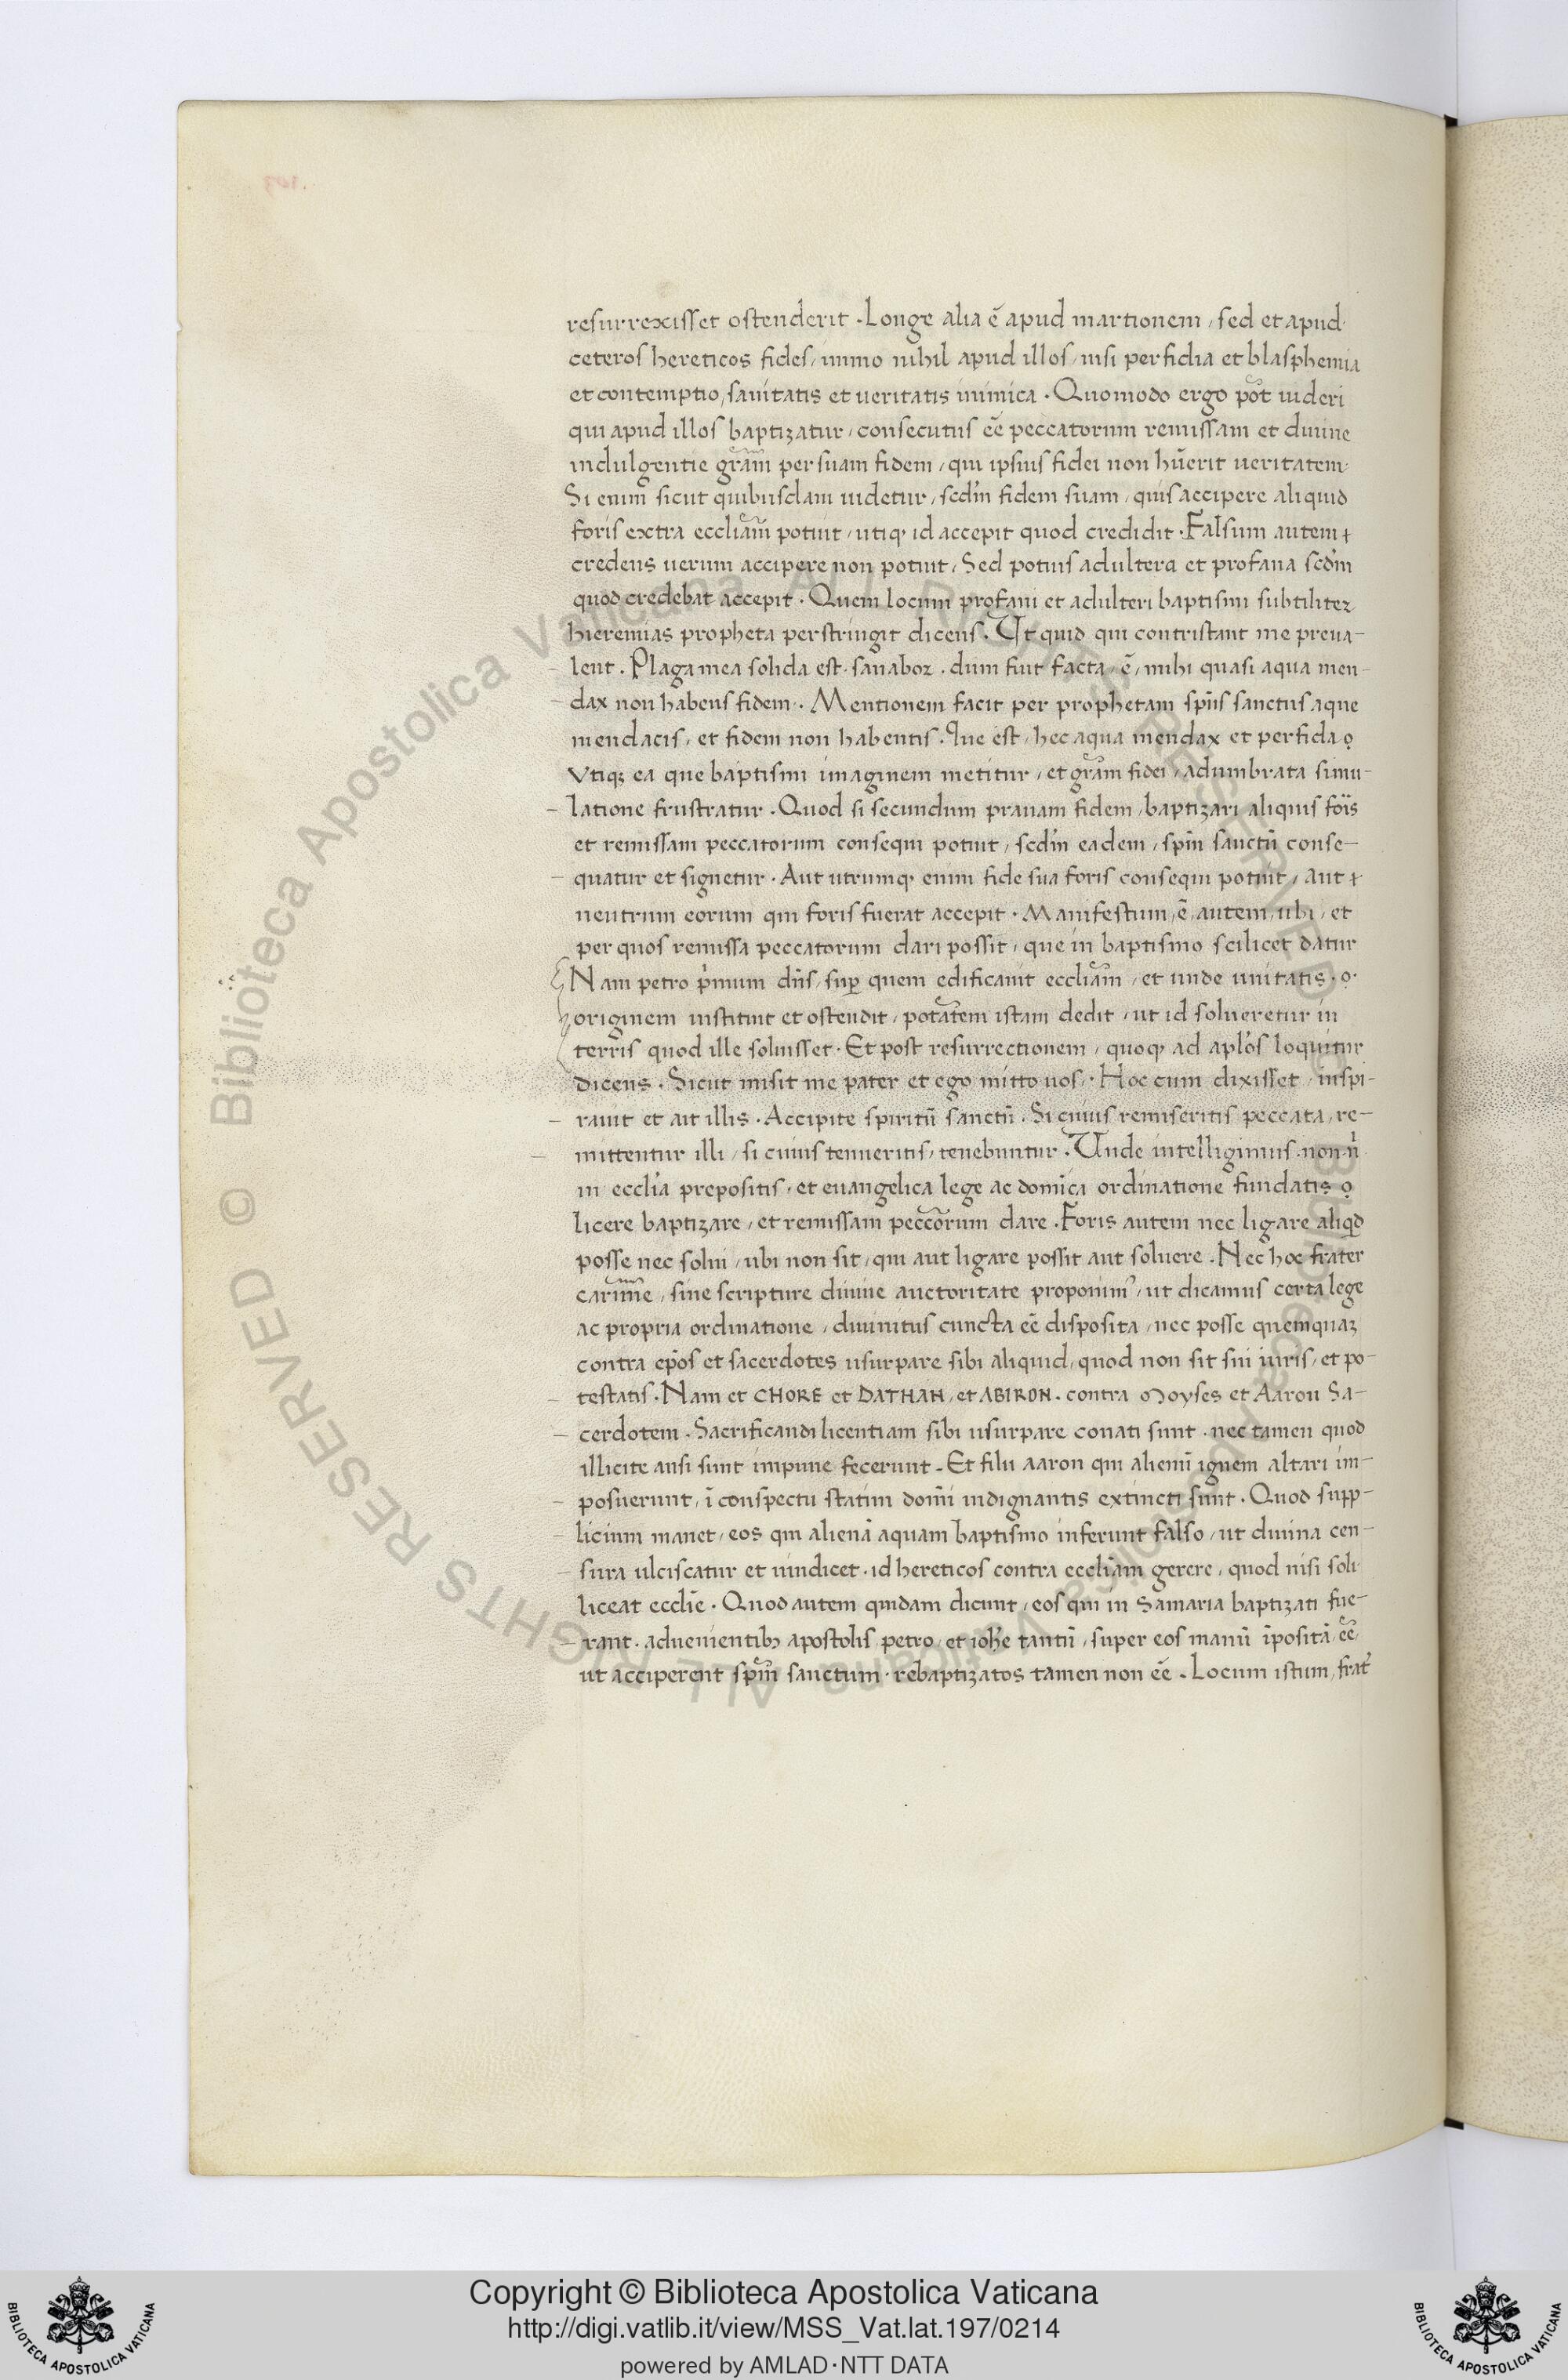 resurrexisset ostenderit . Longe alia ē apud martionem , sed et apud
ceteros hereticos fides , immo nihil apud illos , nisi perfidia et blasphemia
et contemptio , sanitatis et ueritatis inimica . Quomodo ergo pōt uideri
qui apud illos baptizatur , consecutus eē peccatorum remissam et diuine
indulgentie grām per suam fidem , qui ipsius fidei non hūerit ueritatem
Si enim sicut quibusdam uidetur , scd'm fidem suam , quis accipere aliquid
foris extra eccliām potuit , utiq; id accepit quod credidit . Falsum autem
credens uerum accipere non potuit , Sed potius adultera et profana scd'm
quod credebat accepit . Quem locum profani et adulteri baptismi subtiliter
hieremias propheta perstringit dicens . Ut quid qui contristant me preua-
lent . Plaga mea solida est . sanabor . dum fiut facta , ē , mihi quasi aqua men-
dax non habens fidem . Mentionem facit per prophetam spiīs sanctus aque
mendacis , et fidem non habentis . Que est , hec aqua mendax et perfida
Vtiq; ea que baptismi imaginem metitur , et grām fidei , adumbrata simu-
latione frustratur . Quod si secundum prauam fidem , baptizari aliquis foīs
et remissam peccatorum consequi potuit , scd'm eadem , spīm sanctū conse-
quatur et signetur . Aut utrumq; enim fide sua foris consequi potuit , aut
neutrum eorum qui foris fuerat accepit . Manifestum , ē , autem , ubi , et
per quos remissa peccatorum dari possit , que in baptismo scilicet datur
Nam petro p'mum dn̄s , sup quem edificauit eccliām , et unde unitatis .
originem instituit et ostendit , potātem istam dedit , ut id solueretur in
terris quod ille soluisset . Et post resurrectionem , quoq; ad apl'os loquitur
dicens . Sicut misit me pater et ego mitto uos . Hoc cum dixisset , inspi-
rauit et ait illis . Accipite spiritū sanctū . Si cuius remiseritis peccata , re-
mittentur illi , si cuius tenueritis , tenebuntur . Unde intelligimus . non n'
in eccl'ia prepositis , et euangelica lege ac domīca ordinatione fundatis
licere baptizare , et remissam peccōrum dare . Foris autem nec ligare aliqd
posse nec solui , ubi non sit , qui aut ligare possit aut soluere . Nec hoc frater
carīme , sine scripture diuine auctoritate proponim' , ut dicamus certa lege
ac propria ordinatione , diuinitus cuncta eē disposita , nec posse quemquaz
contra epōs et sacerdotes usurpare sibi aliquid , quod non sit sui iuris , et po-
testatis . Nam et CHORE et DATHAN , et ABIRON . contra Moyses et Aaron Sa-
cerdotem . Sacrificandi licentiam sibi usurpare conati sunt . nec tamen quod
illicite ausi sunt impune fecerunt . Et filii aaron qui alienū ignem altari im-
posuerunt , ī conspectu statim domīi indignantis extincti sunt . Quod supp-
licium manet , eos qui alienā aquam baptismo inferunt falso , ut diuina cen-
sura ulciscatur et uindicet . id hereticos contra eccliām gerere , quod nisi soli
liceat ecclīe . Quod autem quidam dicunt , eos qui in Samaria baptizati fue-
rant . aduenientib; apostolis petro , et ioh'e tantū , super eos manū īpositā eē
ut acciperent spīm sanctum . rebaptizatos tamen non eē . Locum istum , frat'
© Biblioteca Apostolica Vaticana ALL RIGHTS RESERVED
© Biblioteca Apostolica Vaticana ALL RIGHTS RESERVED
Copyright © Biblioteca Apostolica Vaticana
http://digi.vatlib.it/view/MSS_Vat.lat.197/0214
powered by AMLAD·NTT DATA
BIBLIOTECA APOSTOLICA VATICANA
BIBLIOTECA APOSTOLICA VATICANA